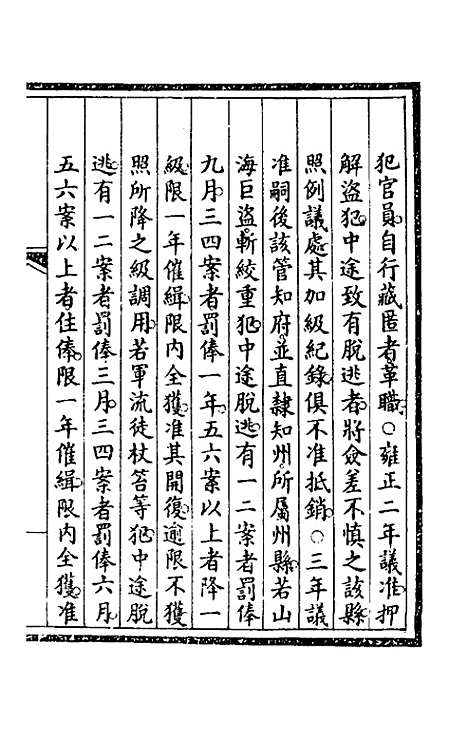 犯官員自行藏匿者革職○雍正二年議准押
解盜犯中途致有脫逃者將僉差不慎之該縣
照例議處其加級紀錄俱不准抵銷○三年議
准嗣後該管知府並直隸知州所屬州縣若山
海巨盜斬絞重犯中途脫逃有一二案者罰俸
九月三四案者罰俸一年五六案以上者降一
級限一年催緝限內全獲准其開復逾限不獲
照所降之級調用若軍流徒杖笞等犯中途脫
逃有一二案者罰俸三月三四案者罰俸六月
五六案以上者住俸限一年催緝限內全獲准